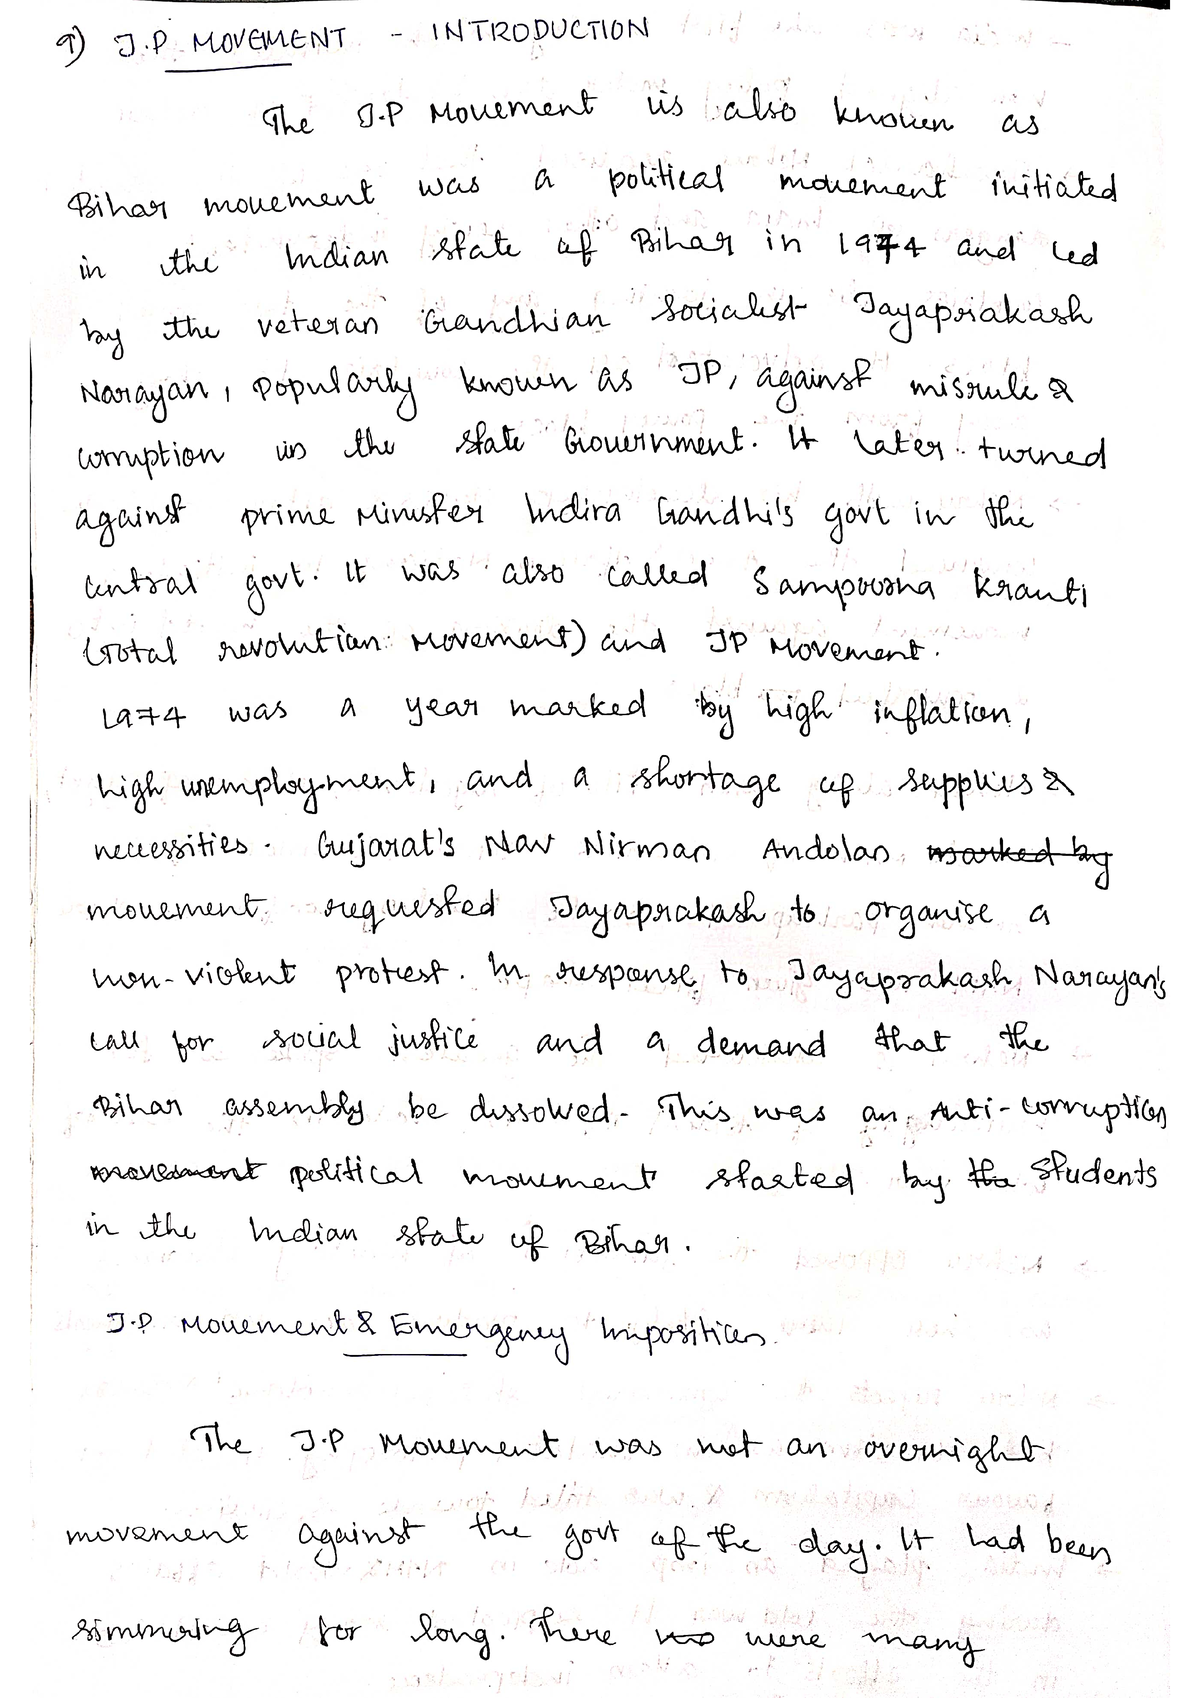 9) J.P MOVEMENT - INTRODUCTION
The J.P Movement is also known as
Bihar movement was a political movement initiated
in the Indian state of Bihar in 1974 and led
by the veteran Gandhian Socialist Jayaprakash
Narayan, Popularly known as JP, against misrule &
corruption in the state Government. It later turned
against prime Minister Indira Gandhi's govt in the
central govt. It was also called Sampoorna Kranti
(Total revolution Movement) and JP Movement.
1974 was a year marked by high inflation,
high unemployment, and a shortage of supplies &
necessities. Gujarat's Nav Nirman Andolan marked by
movement requested Jayaprakash to organise a
non-violent protest. In response to Jayaprakash Narayan's
call for social justice and a demand that the
Bihar assembly be dissolved. This was an Anti-corruption
movement political movement started by the students
in the Indian state of Bihar.
J.P Movement & Emergency Imposition
The J.P Movement was not an overnight
movement against the govt of the day. It had been
simmering for long. There were many